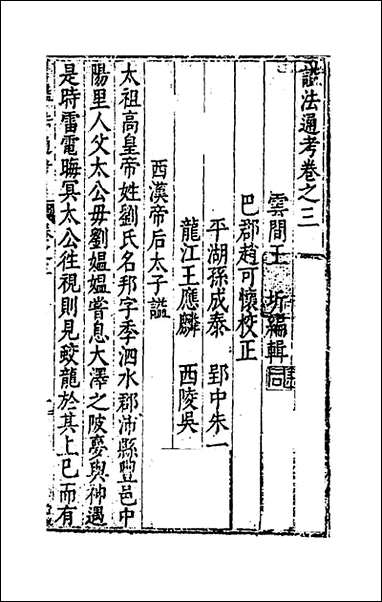 諡法通考卷之三
雲間王圻編輯
巴郡趙可懷校正
平湖孫成泰 郢中朱一
龍江王應麟 西陵吳
西漢帝后太子諡
太祖高皇帝姓劉氏名邦字季泗水郡沛縣豐邑中
陽里人父太公母劉媼媼嘗息大澤之陂夢與神遇
是時雷電晦冥太公往視則見蛟龍於其上已而有